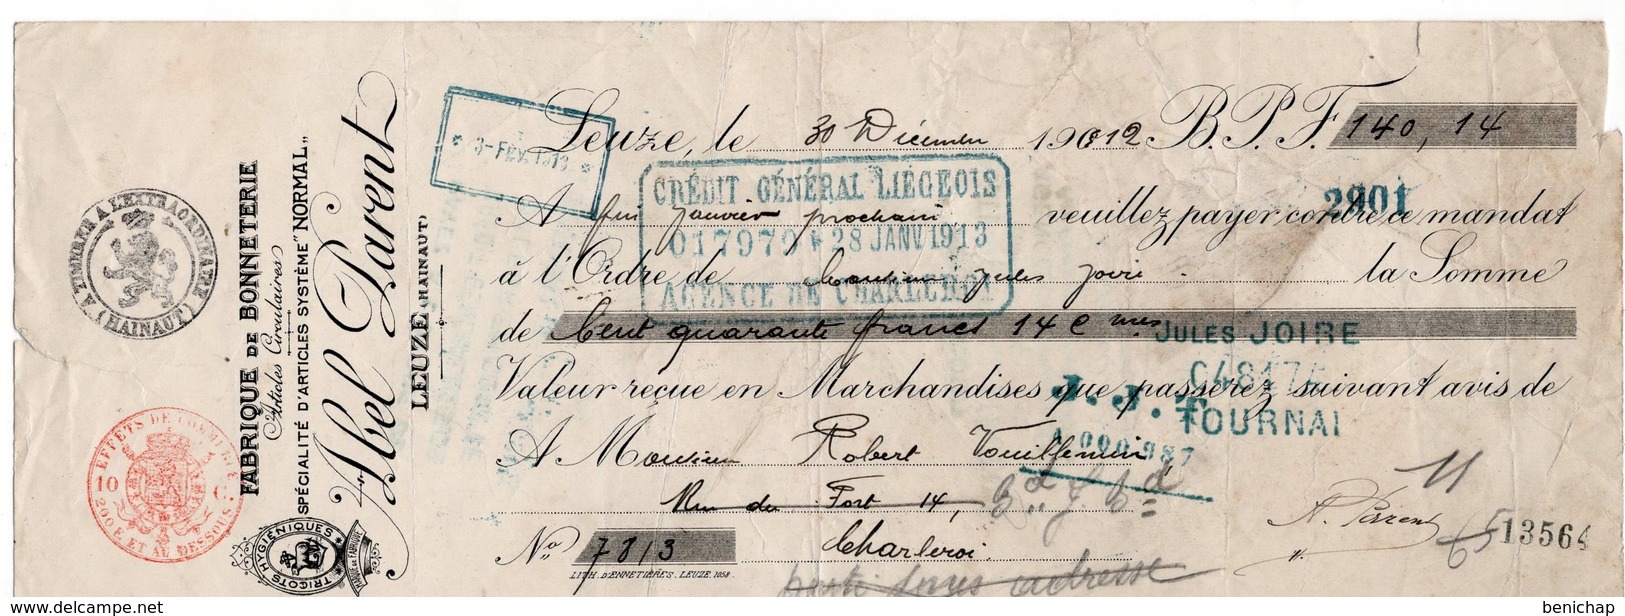 Leuze, le 30 Décembre 190 1912 B.P.F. 140, 14
* 3-FEV. 1913 *
CRÉDIT GÉNÉRAL LIÉGEOIS
017979 * 28 JANV 1913
AGENCE DE CHARLEROI
2901
A fin janvier prochain veuillez payer contre ce mandat
à l'Ordre de Monsieur Jules Joire la Somme
de Cent quarante francs 14 cmes
JULES JOIRE
C4817
TOURNAI
Valeur reçue en Marchandises que passerez suivant avis de
J. J. T.
A Monsieur Robert Vouillemin
Rue du Fort 14,
No 7813 Charleroi
A. Parent
11
13564
LITH. D'ENNETIÈRES. LEUZE. 1058
parti sans adresse
FABRIQUE DE BONNETERIE
Articles Circulaires
SPÉCIALITÉ D'ARTICLES SYSTÈME "NORMAL"
Abel Parent
LEUZE (HAINAUT)
TRICOTS HYGIÉNIQUES
MARQUE DE FABRIQUE
A TIMBRER A L'EXTRAORDINAIRE
(HAINAUT)
EFFETS DE COMMERCE
10 C.
200 F. ET AU DESSOUS
http://www.delcampe.net
benichap